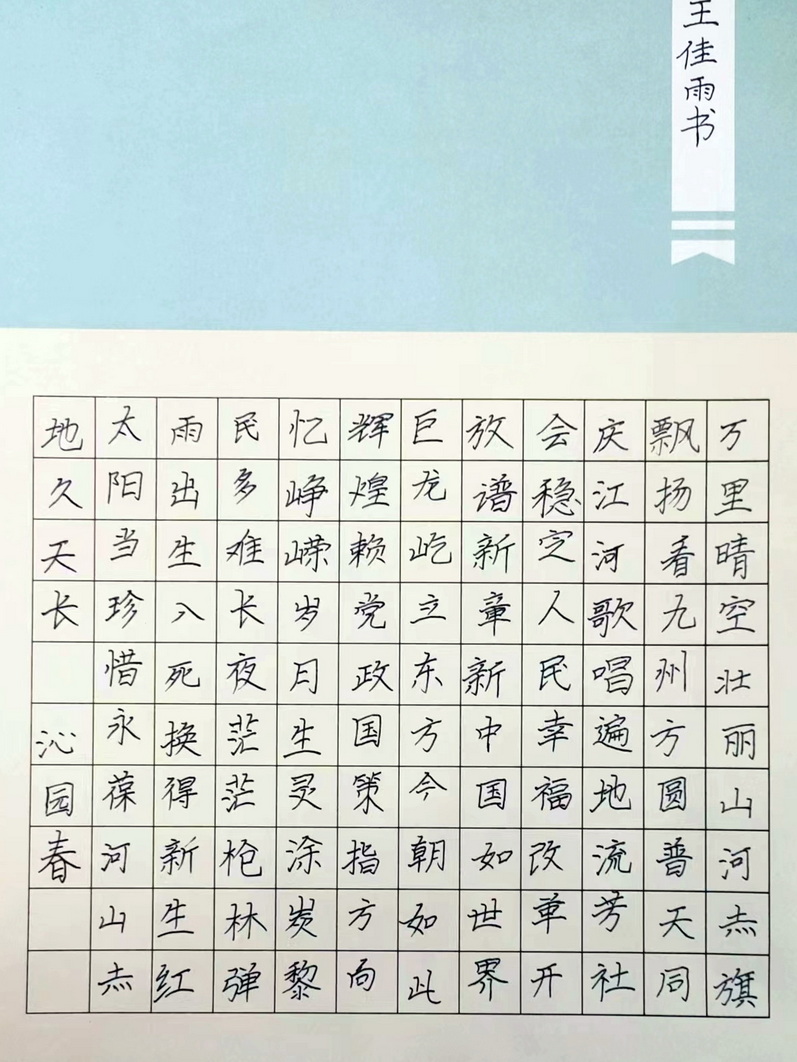 王佳雨书
万里晴空壮丽山河赤旗
飘扬看九州方圆普天同
庆江河歌唱遍地流芳社
会稳定人民幸福改革开
放谱新章新中国如世界
巨龙屹立东方今朝如此
辉煌赖党政国策指方向
忆峥嵘岁月生灵涂炭黎
民多难长夜茫茫枪林弹
雨出生入死换得新生红
太阳当珍惜永葆河山赤
地久天长 沁园春